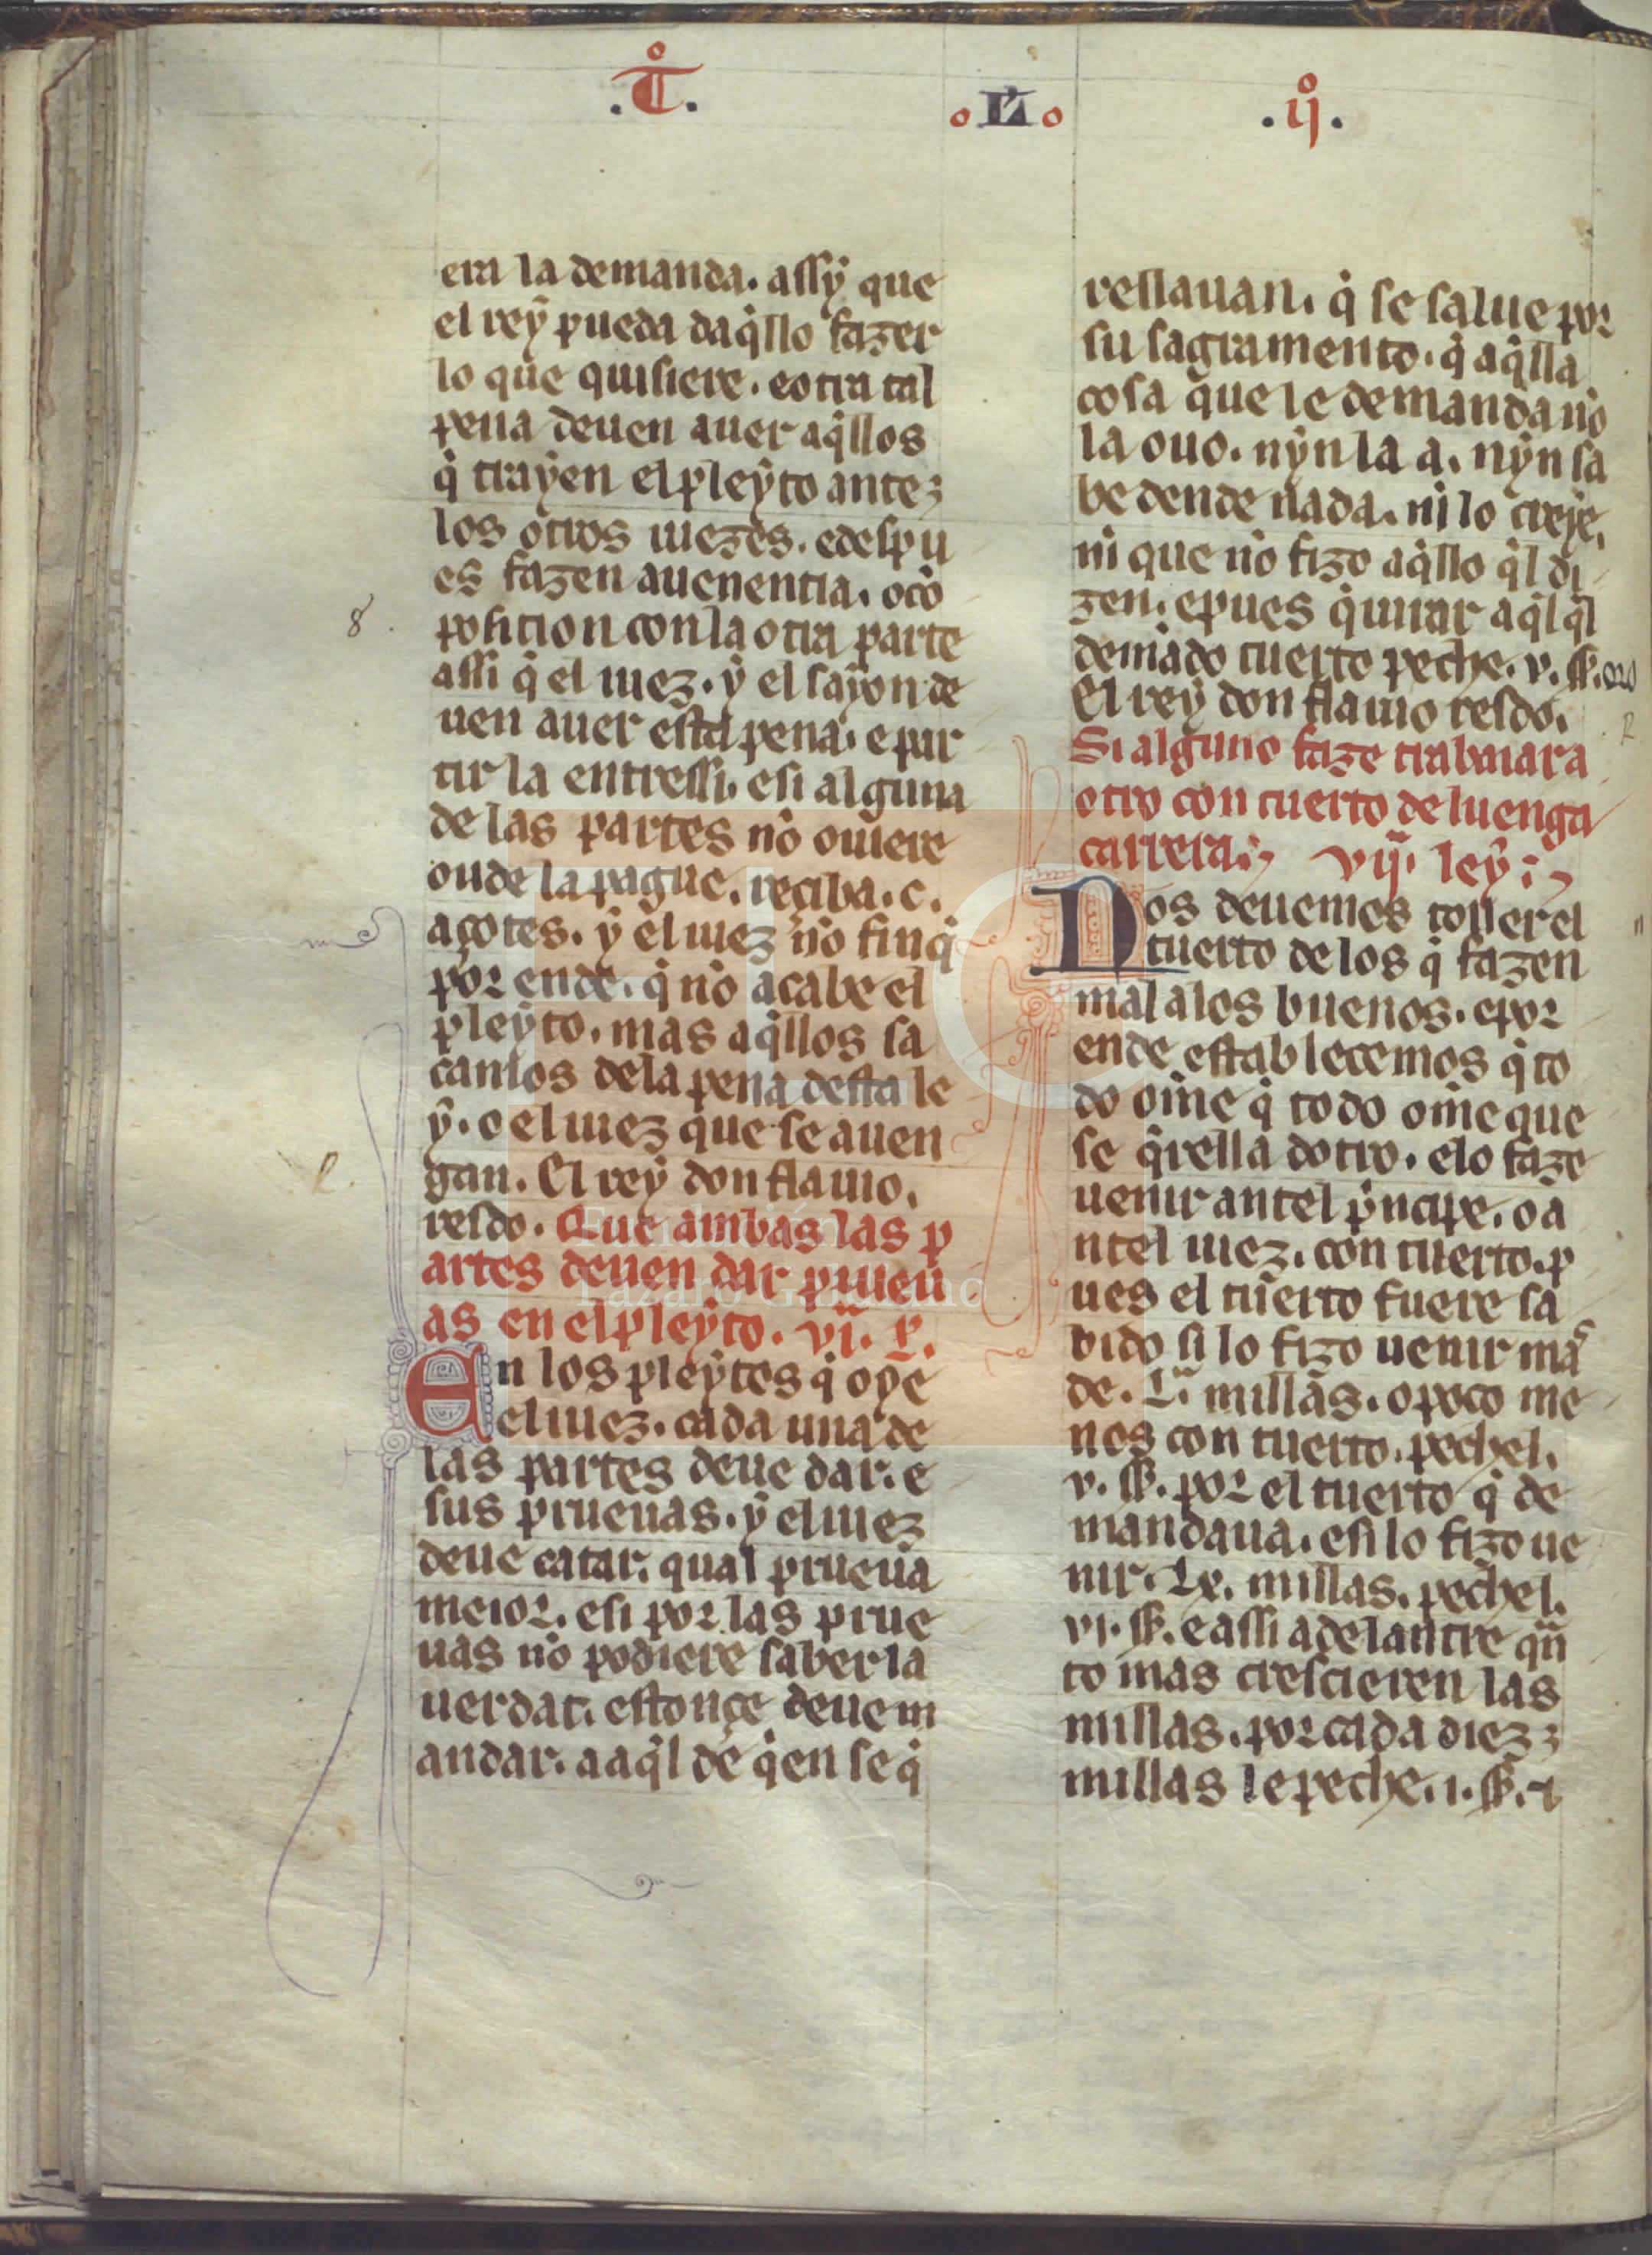 .T̊. .L̊. .ij̊.
era la demanda. assẏ que
el reẏ pueda daq̇llo fazer
lo que quisiere. eotra tal
pena deuen auer aq̇llos
q̇ traẏen el pleẏto ante
los otros iuezes. edespu
es fazen auenentia. ocō
position con la otra parte
assi q̇ el iuez. ẏ el saẏon de
uen auer esta pena. e par
tir la entressi. esi alguna
de las partes nō ouiere
onde la pague. reçiba. c.
açotes. ẏ el iuez nō finq̇
por ende. q̇ nō acabe el
pleẏto. mas aq̇llos sa
camos dela pena desta le
ẏ. o el iuez que se auen
gan. El reẏ don flauio.
resdo. Que ambas las p
artes deuen dar prueu
as en el pleẏto. vi. l.
En los pleẏtos q̇ oẏe
el iuez. cada una de
las partes deue dar. e
sus prueuas. ẏ el iuez
deue catar. qual prueua
meior. esi por las prue
uas nō podiere saber la
uerdat. estonçe deue m
andar. a aq̇l de q̇en se q̇
rellauan. q̇ se salue por
su sagramento. q̇ aq̇lla
cosa que le demanda nō
la ouo. nẏn la a. nẏn sa
be dende nada. ni lo creẏe.
ni que nō fizo aq̇llo q̇l di
zen. epues q̇ iurar aq̇l q̇l
demādo tuerto peche. v. ss.
El reẏ don flauio resdo.
Si alguno faze trabaiar a
otro con tuerto de luenga
carrera. vij. leẏ.
Nos deuemos toller el
tuerto de los q̇ fazen
mal a los buenos. epor
ende establecemos q̇ to
do om̄e q̇ todo om̄e que
se q̇rella dotro. elo faze
uenir antel ṗncipe. o a
ntel iuez. con tuerto. p
ues el tuerto fuere sa
bido si lo fizo uenir mas
de. L. millas. o poco me
nos con tuerto. pechel.
v. ss. por el tuerto q̇ de
mandaua. esi lo fizo ue
nir. Lx. millas. pechel.
vi. ss. e assi adelantre quā
to mas crescieren las
millas. por cada diez
millas le peche. i. ss. ⁊